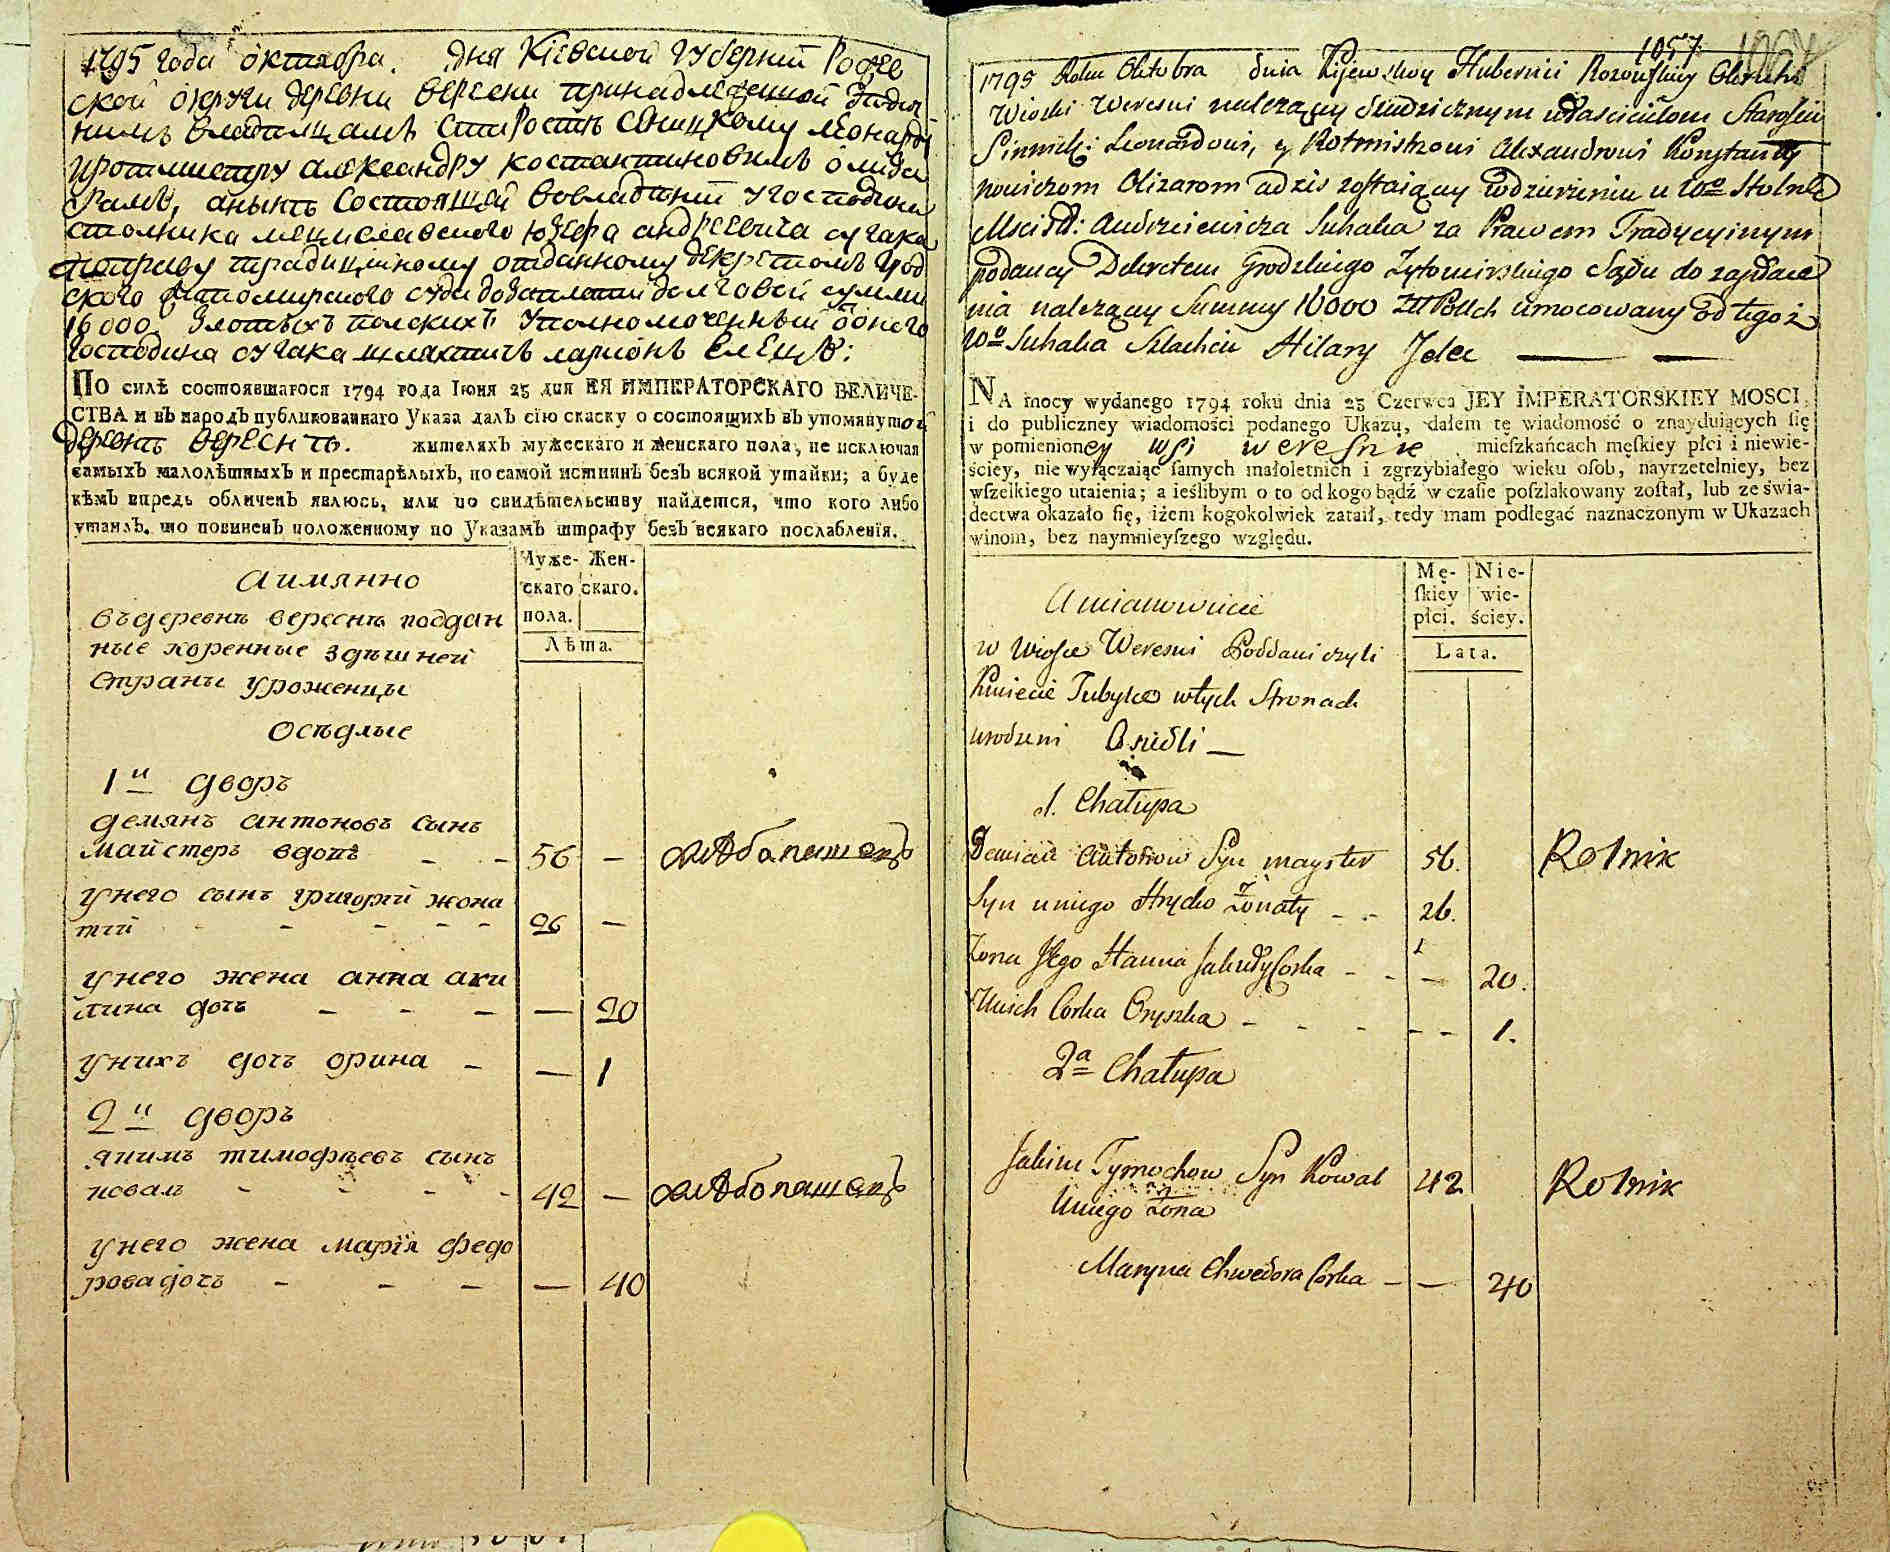 1795 года октября. дня Кіевской Губерніи Рофе
ской округи деревни Вересни принадлеженной
нимъ владельцамъ Старостъ Синицкому Леонарду
иротмистру александру костантиновичамъ олиза
рамъ, анынѣ Состоящей вовладѣніи угосподина
столника мсцмславского юзефа андреевича сугака
поправу традицийному отданному декретомъ Грод
ского Житомирского суда дозаплати долговой суммы
16000. Злотыхъ полскихъ Уполномоченный отонаго
Господина сугака шляхтичъ ларионъ Елецъ:
ПО силѣ состоявшагося 1794 года Іюня 23 дня ЕЯ ИМПЕРАТОРСКАГО ВЕЛИЧЕ-
СТВА и въ народъ публикованнаго Указа далъ сію скаску о состоящихъ въ упомянутой
деревнѣ Вереснѣ. жителяхъ мужескаго и женскаго пола, не исключая
самыхъ малолѣтныхъ и престарѣлыхъ, по самой истиннѣ безъ всякой утайки; а буде
кѣмъ впредь обличенъ явлюсь, или по свидѣтельству найдется, что кого либо
утаилъ, то повиненъ положенному по Указамъ штрафу безъ всякаго послабленія.
Муже- Жен-
скаго скаго.
пола.
Лѣта.
аимянно
въдеревнѣ вереснѣ поддан
ные коренные здѣшней
страны уроженцы
Осѣдлые
1й дворъ
демянъ антоновъ сынъ
майстеръ вдовъ - - 56 — хлѣбопашецъ
унего сынъ григорій жона
тій - - - - 26 —
унего жена анна аки
лина дочь - - - — 20
унихъ дочь орина - — 1
2й дворъ
якимъ тимофѣевъ сынъ
коваль - - - - 42 — хлѣбопашецъ
унего жена марїя федо
рова дочь - - - — 40
1057.
1795 Roku Oktobra dnia Kijewskiey Hubernii Rozowskiey Okruhi
Wioski Weresni należący dziedzicznym właścicielom Staroście
Sinnick: Leonardowi, y Rotmistrzowi Alexandrowi Konstanty
nowiczom Olizarom adziś zostaiący wdzierżeniu u Wo Stolnika
Mscisł: Andrzeiewicza Suhaka za Prawem Tradycyinym
podancy Dekretem Grodzkiego Żytomirskiego Sądu do zapłace
nia należący Summy 16000 Zł Polsch umocowany od tegoż
Wo Suhaka Szlachcic Hilary Jelec — —
NA mocy wydanego 1794 roku dnia 23 Czerwca JEY IMPERATORSKIEY MOSCI,
i do publiczney wiadomości podanego Ukazu, dałem tę wiadomość o znayduiących ſię
w pomienioney wsi weresnie mieſzkańcach męſkiey płci i niewie-
ściey, nie wyłączaiąc ſamych małoletnich i zgrzybiałego wieku oſob, nayrzetelniey, bez
wſzelkiego utaienia; a ieślibym o to od kogo bądź w czaſie poſzlakowany zoſtał, lub ze świa-
dectwa okazało ſię, iżem kogokolwiek zataił, tedy mam podlegać naznaczonym w Ukazach
winom, bez naymnieyſzego względu.
Mę- Nie-
ſkiey wie-
płci. ściey.
Lata.
Amianowicie
w wiosce Weresni Poddani czyli
Kmiecie Tubylce wtych Stronach
urodzeni Osiedli —
1. Chałupa
Demian Antonow Syn mayster 56. Rolnik
Syn uniego Hryćko Żonaty - - 26.
Żona Jego Hanna Jakuły Corka - - — 20.
Unich Corka Oryszka - - - - - 1.
2a Chałupa
Jakim Tymochow Syn Kowal 42 Rolnik
Uniego Żona
Maryna Chwedora Corka - — 40